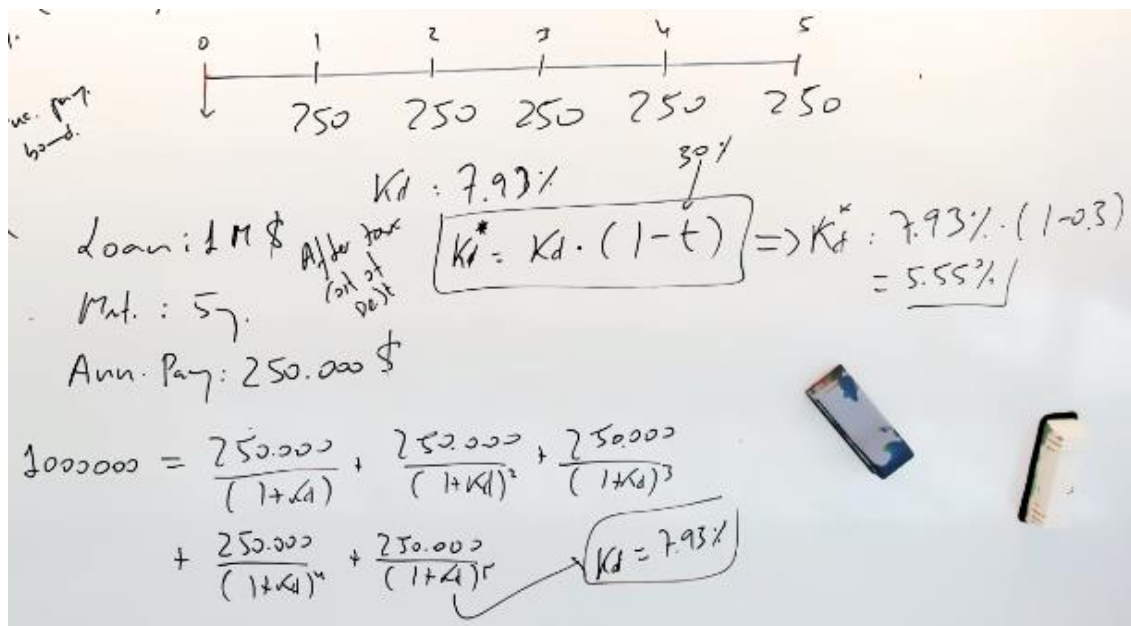 0 1 2 3 4 5
250 250 250 250 250
bond.
Kd : 7.93%
30%
Loan: 1 M $
After tax
Cost of
Debt
Kd* = Kd · (1-t) => Kd* : 7.93% · (1-0.3)
= 5.55%
Mat. : 5y.
Ann. Pay: 250.000 $
1000000 = 250.000/(1+Kd) + 250.000/(1+Kd)² + 250.000/(1+Kd)³
+ 250.000/(1+Kd)⁴ + 250.000/(1+Kd)⁵
Kd = 7.93%